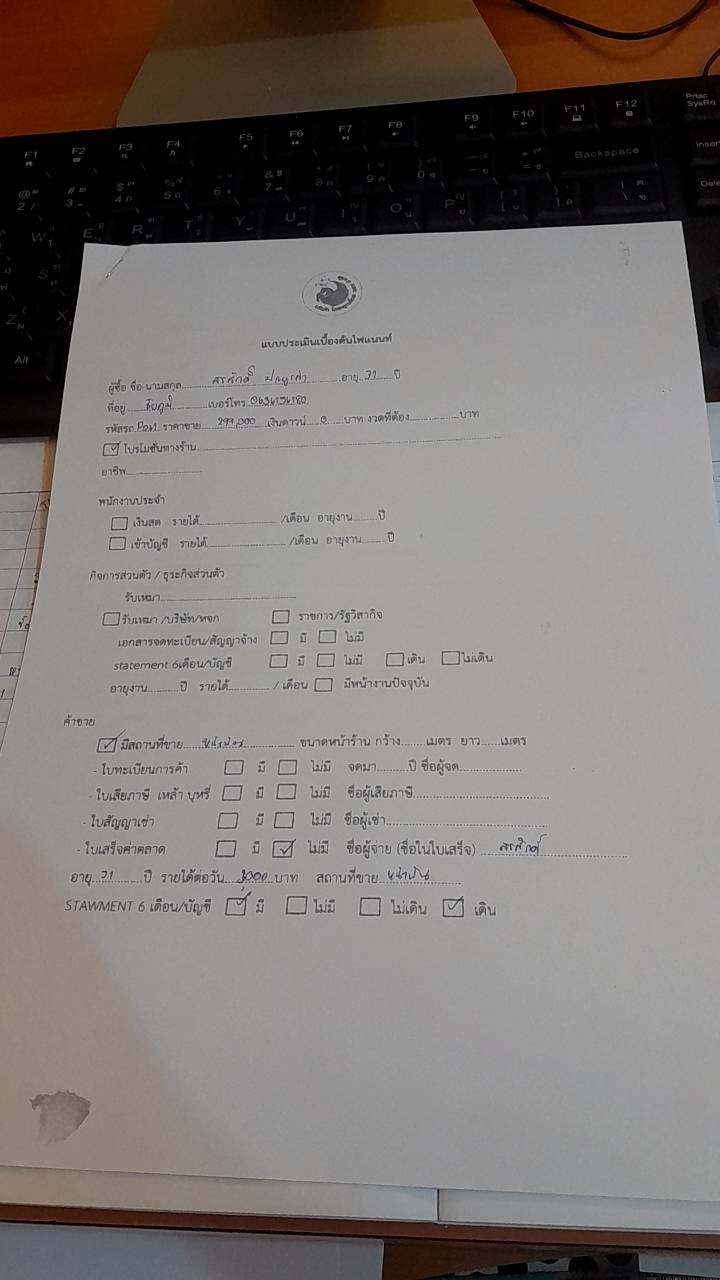 F1 F2 F3 F4 F5 F6 F7 F8 F9 F10 F11 F12 PrtSc SysRq
Backspace
Alt
แบบประเมินเบื้องต้นไฟแนนท์
ผู้ซื้อ ชื่อ นามสกุล อายุ 31 ปี
ที่อยู่ ชัยภูมิ เบอร์โทร
รหัสรถ ราคาขาย 299,000 เงินดาวน์ 0 บาท งวดที่ต้อง บาท
โปรโมชั่นทางร้าน
อาชีพ
พนักงานประจำ
เงินสด รายได้ /เดือน อายุงาน ปี
เข้าบัญชี รายได้ /เดือน อายุงาน ปี
กิจการส่วนตัว / ธุระกิจส่วนตัว
รับเหมา
รับเหมา /บริษัท/หจก ราชการ/รัฐวิสากิจ
เอกสารจดทะเบียน/สัญญาจ้าง มี ไม่มี
statement 6เดือน/บัญชี มี ไม่มี เดิน ไม่เดิน
อายุงาน ปี รายได้ / เดือน มีหน้างานปัจจุบัน
ค้าขาย
มีสถานที่ขาย ขนาดหน้าร้าน กว้าง เมตร ยาว เมตร
- ใบทะเบียนการค้า มี ไม่มี จดมา ปี ชื่อผู้จด
- ใบเสียภาษี เหล้า บุหรี่ มี ไม่มี ชื่อผู้เสียภาษี
- ใบสัญญาเช่า มี ไม่มี ชื่อผู้เช่า
- ใบเสร็จค่าตลาด มี ไม่มี ชื่อผู้จ่าย (ชื่อในใบเสร็จ) ศรศักดิ์
อายุ 31 ปี รายได้ต่อวัน บาท สถานที่ขาย หน้าบ้าน
STAWMENT 6 เดือน/บัญชี มี ไม่มี ไม่เดิน เดิน